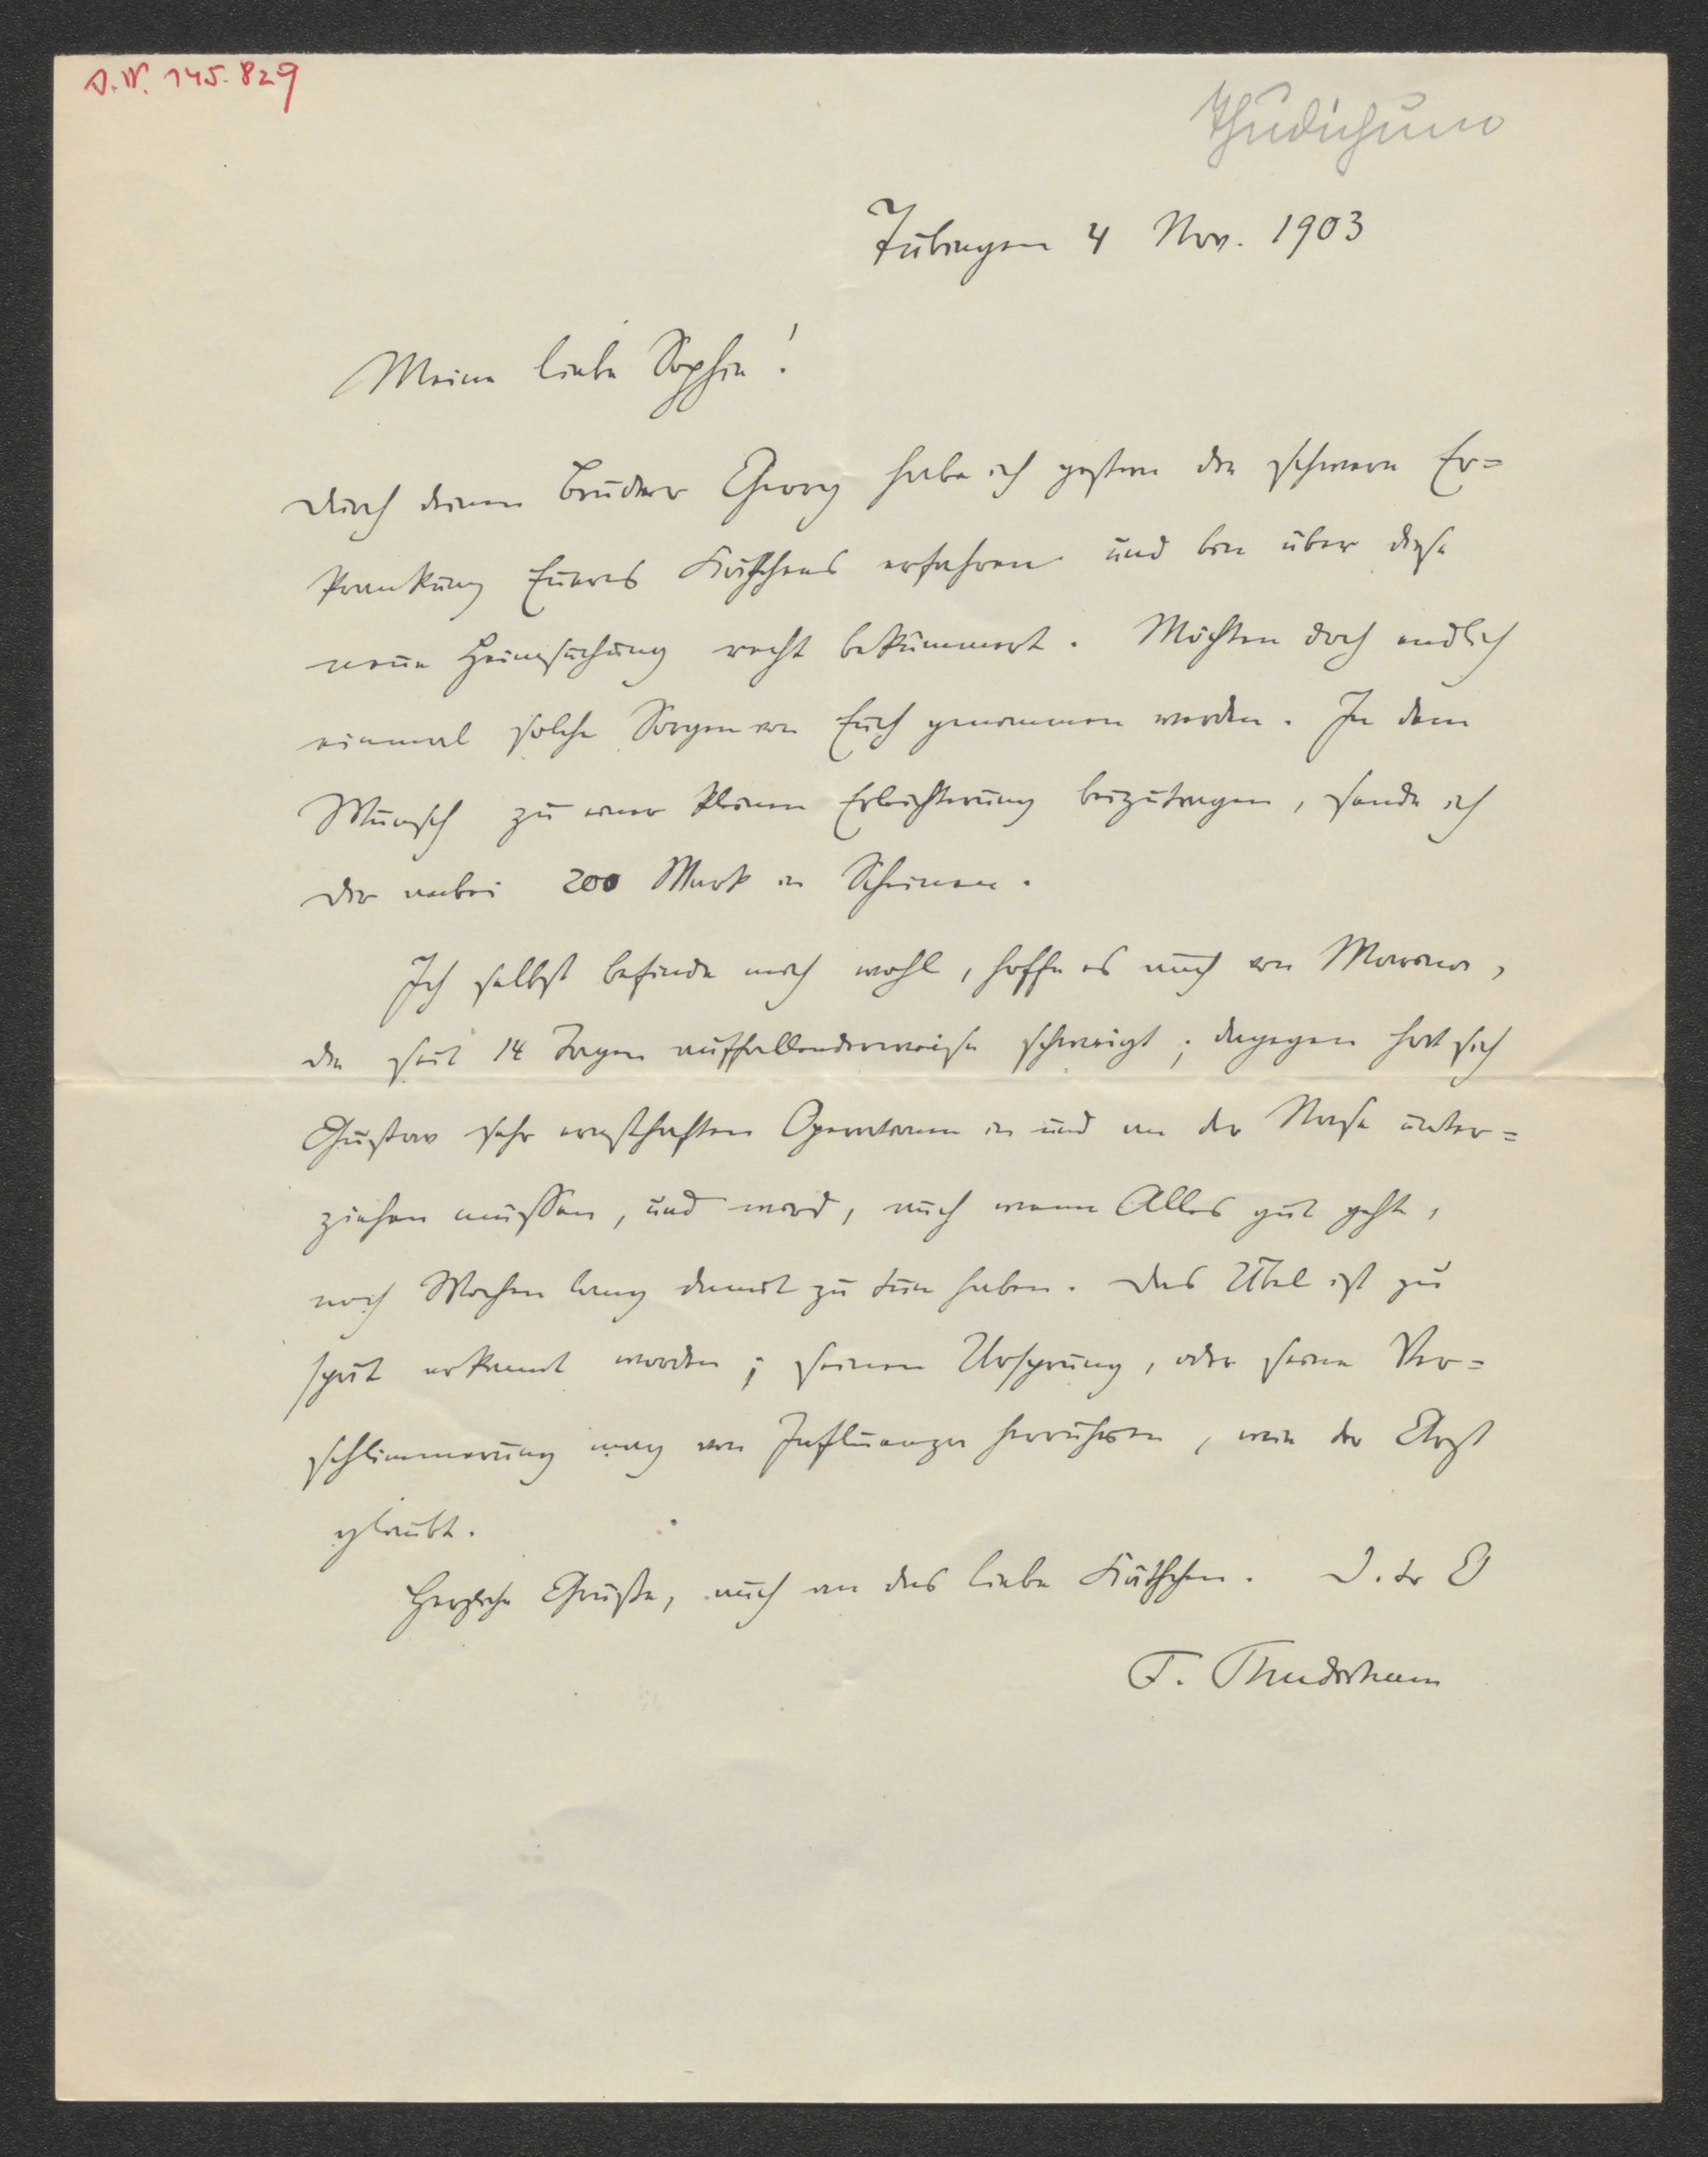 A.N. 145.829
Thudichum
Tübingen 4 Nov. 1903
Meine liebe Sophie!
Durch deinen Bruder Georg habe ich gestern die schwere Er=
krankung Eueres Käthchens erfahren und bin über diese
neue Heimsuchung recht bekümmert. Möchten doch endlich
einmal solche Sorgen von Euch genommen werden. In dem
Wunsch zu einer kleinen Erleichterung beizutragen, sende ich
Dir anbei 200 Mark in Scheinen.
Ich selbst befinde mich wohl, hoffe es auch von
die seit 14 Tagen auffallenderweise schweigt; dagegen hat sich
Gustav sehr ernsthaften Operationen in und an der Nase unter=
ziehen müssen, und wird, auch wenn Alles gut geht,
noch Wochen lang damit zu tun haben. Das Übel ist zu
spät erkannt worden; seinen Ursprung, oder seine Ver=
schlimmerung mag von Influenza herrühren, wie der Arzt
glaubt.
Herzliche Grüße, auch an das liebe Käthchen. D. tr O
F. Thudichum